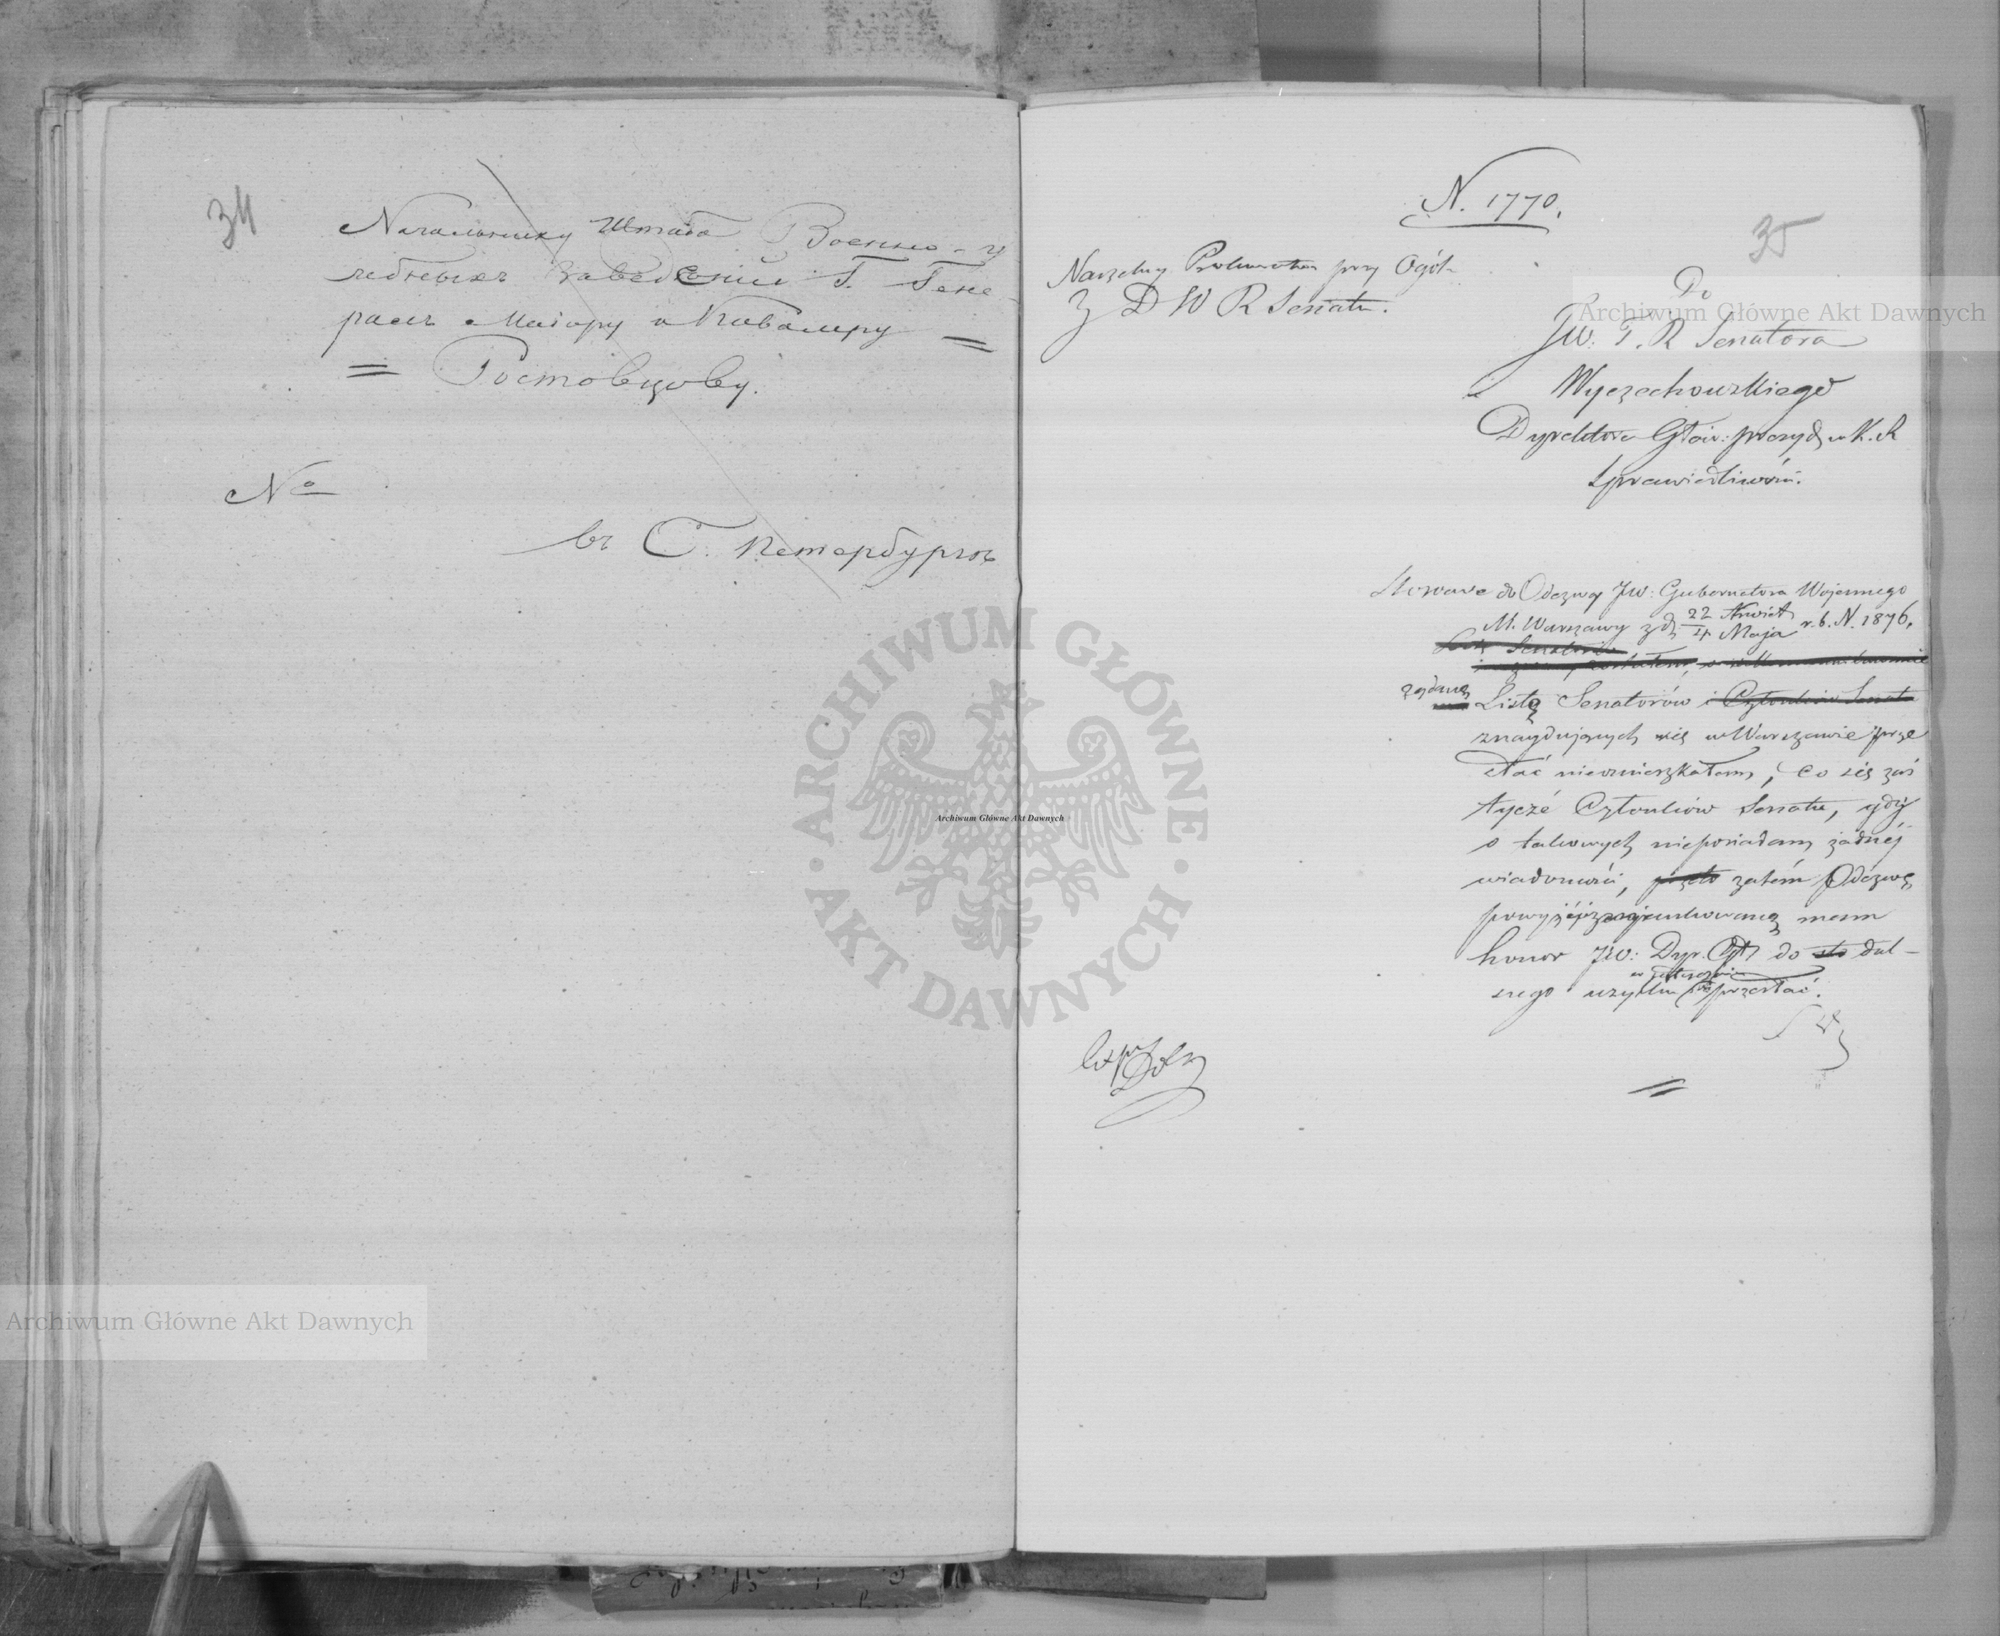 34
Начальнику Штаба Военно-у
чебныхъ заведеній Г. Гене
ралъ Маіору и Кавалеру =
= Ростовцову.
No
въ С. Петербургъ
N. 1770.
35
Naczelny Prokurator przy Ogól.
Z D W R Senatu.
Do
JW. T. R Senatora
Wyczechowskiego
Dyrektora Głów: prezyd. w K. R
Sprawiedliwości.
Stosownie do Odezwy JW: Gubernatora Wojennego
M. Warszawy z d. 22 Kwiet / 4 Maja r. b. N. 1876.
Senatorów
żądaną Listę Senatorów i Członków Senatu
znaydujących się w Warszawie prze
słać nieomieszkałem, Co się zaś
tycze Członków Senatu, gdy
o takowych nieposiadam żadnéj
wiadomości, przeto zatém Odezwę
powyżéj mam
honor JW: Dyr. Gł do dal-
szego użytku przesłać.
Archiwum Główne Akt Dawnych
Archiwum Główne Akt Dawnych
Archiwum Główne Akt Dawnych
ARCHIWUM GŁÓWNE AKT DAWNYCH